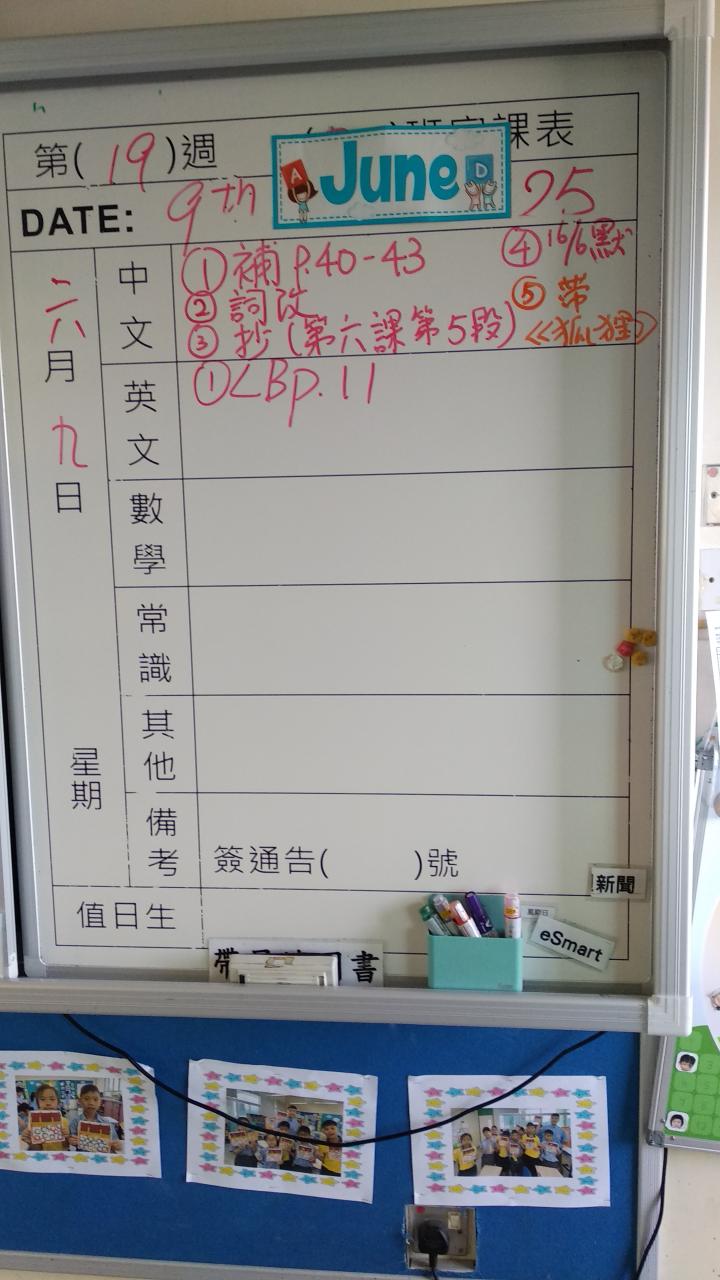 第( 19 )週 課表
DATE: 9th June 25
六月九日
星期
中文
① 補 P.40-43
② 詞改
③ 抄 (第六課第5段)
④ 16/6默
⑤ 帶
《狐狸》
英文
① LBp.11
數學
常識
其他
備考
簽通告( )號
值日生
新聞
eSmart
帶
書
A
D